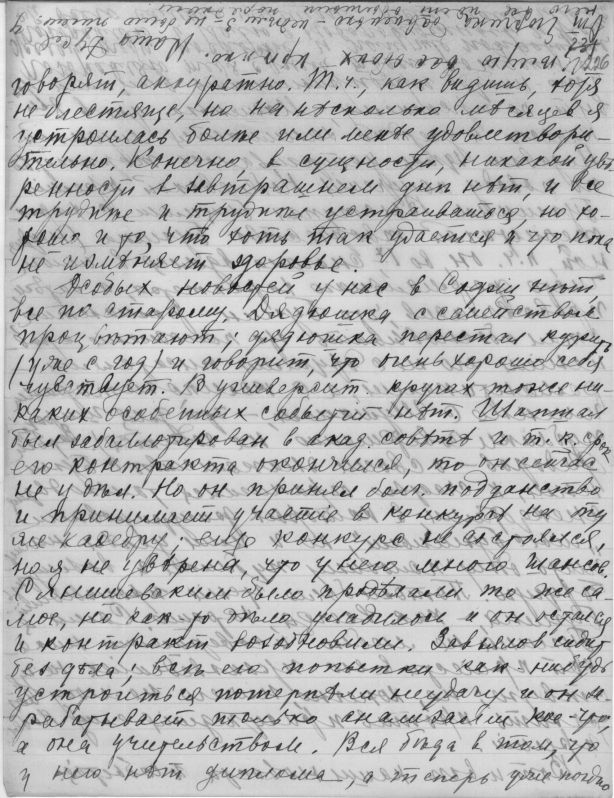 говорят, аккуратно. Т. ч., как видишь, хотя
не блестяще, но на нѣсколько мѣсяцев я
устроилась болѣе или менѣе удовлетвори-
тельно. Конечно, в сущности, никакой увѣ-
ренности в завтрашнем днѣ нѣт, и все
труднѣе и труднѣе устраиваться, но хо-
рошо и то, что хоть так удается и что пока
не измѣняет здоровье.
Особых новостей у нас в Софии нѣт,
все по старому. Дядюшка с семейством
процвѣтают; дядюшка перестал курить
(уже с год) и говорит, что очень хорошо себя
чувствует. В университ. кругах тоже ни-
каких особенных событий нѣт. Шапшал
был забаллотирован в акад. совѣтѣ и т. к. срок
его контракта окончился, то он сейчас
не у дѣл. Но он принял болг. подданство
и принимает участіе в конкурсѣ на ту
же каѳедру; еще конкурс не состоялся,
но я не увѣрена, что у него много шансов.
С Янишевским было продѣлали то же са-
мое, но как то дѣло уладилось и он остался
и контракт возобновили. Завьялов сидит
без дѣла; всѣ его попытки как-нибудь
устроиться потерпѣли неудачу и он за-
рабатывает только анализами кое-что,
а она учительством. Вся бѣда в том, что
у него нѣт диплома, а теперь уже поздно